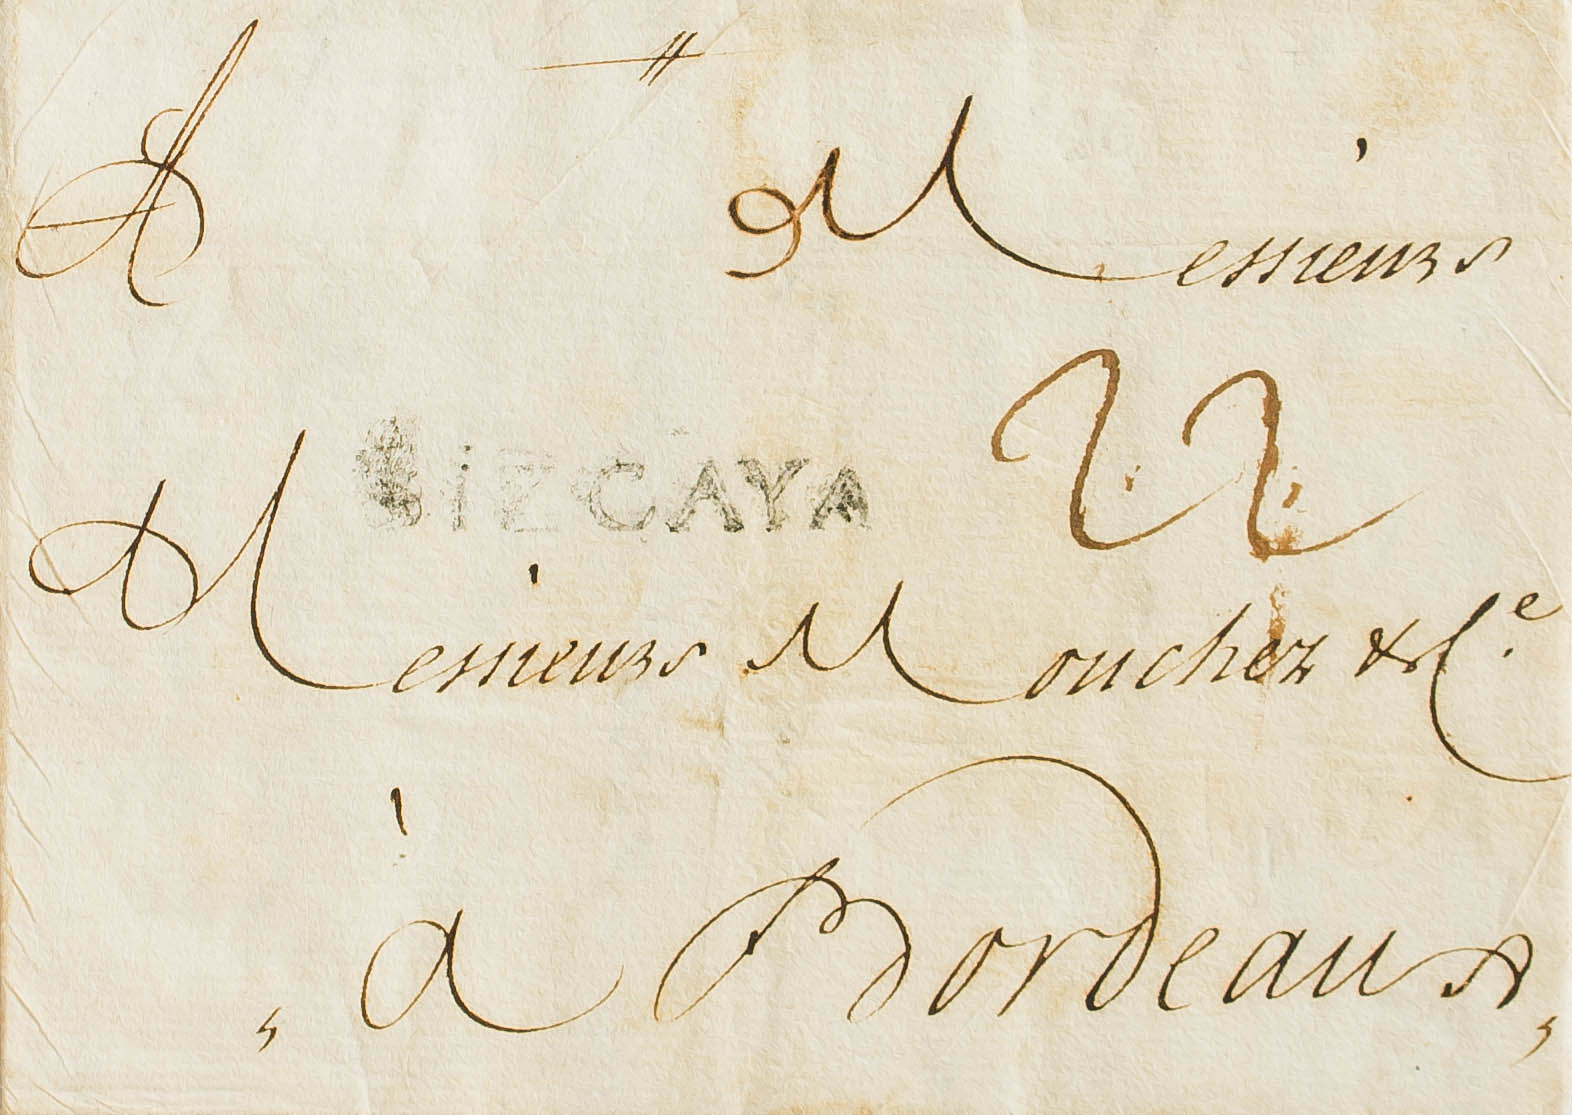 A Messieurs
22
BIZCAYA
Messieurs Mouchez & Ce.
à Bordeaux